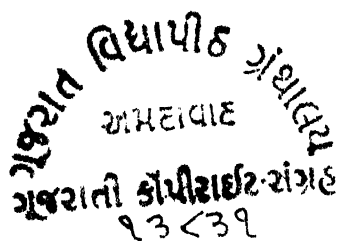 ગૂજરાત વિદ્યાપીઠ ગ્રંથાલય
અમદાવાદ
ગૂજરાતી કૉપીરાઈટ-સંગ્રહ
૧૩૮૩૧